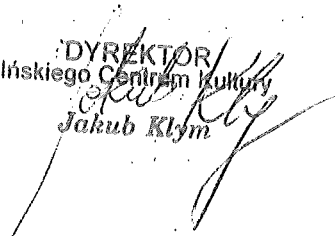 DYREKTOR
Ińskiego Centrum Kultury
Jakub Kłym